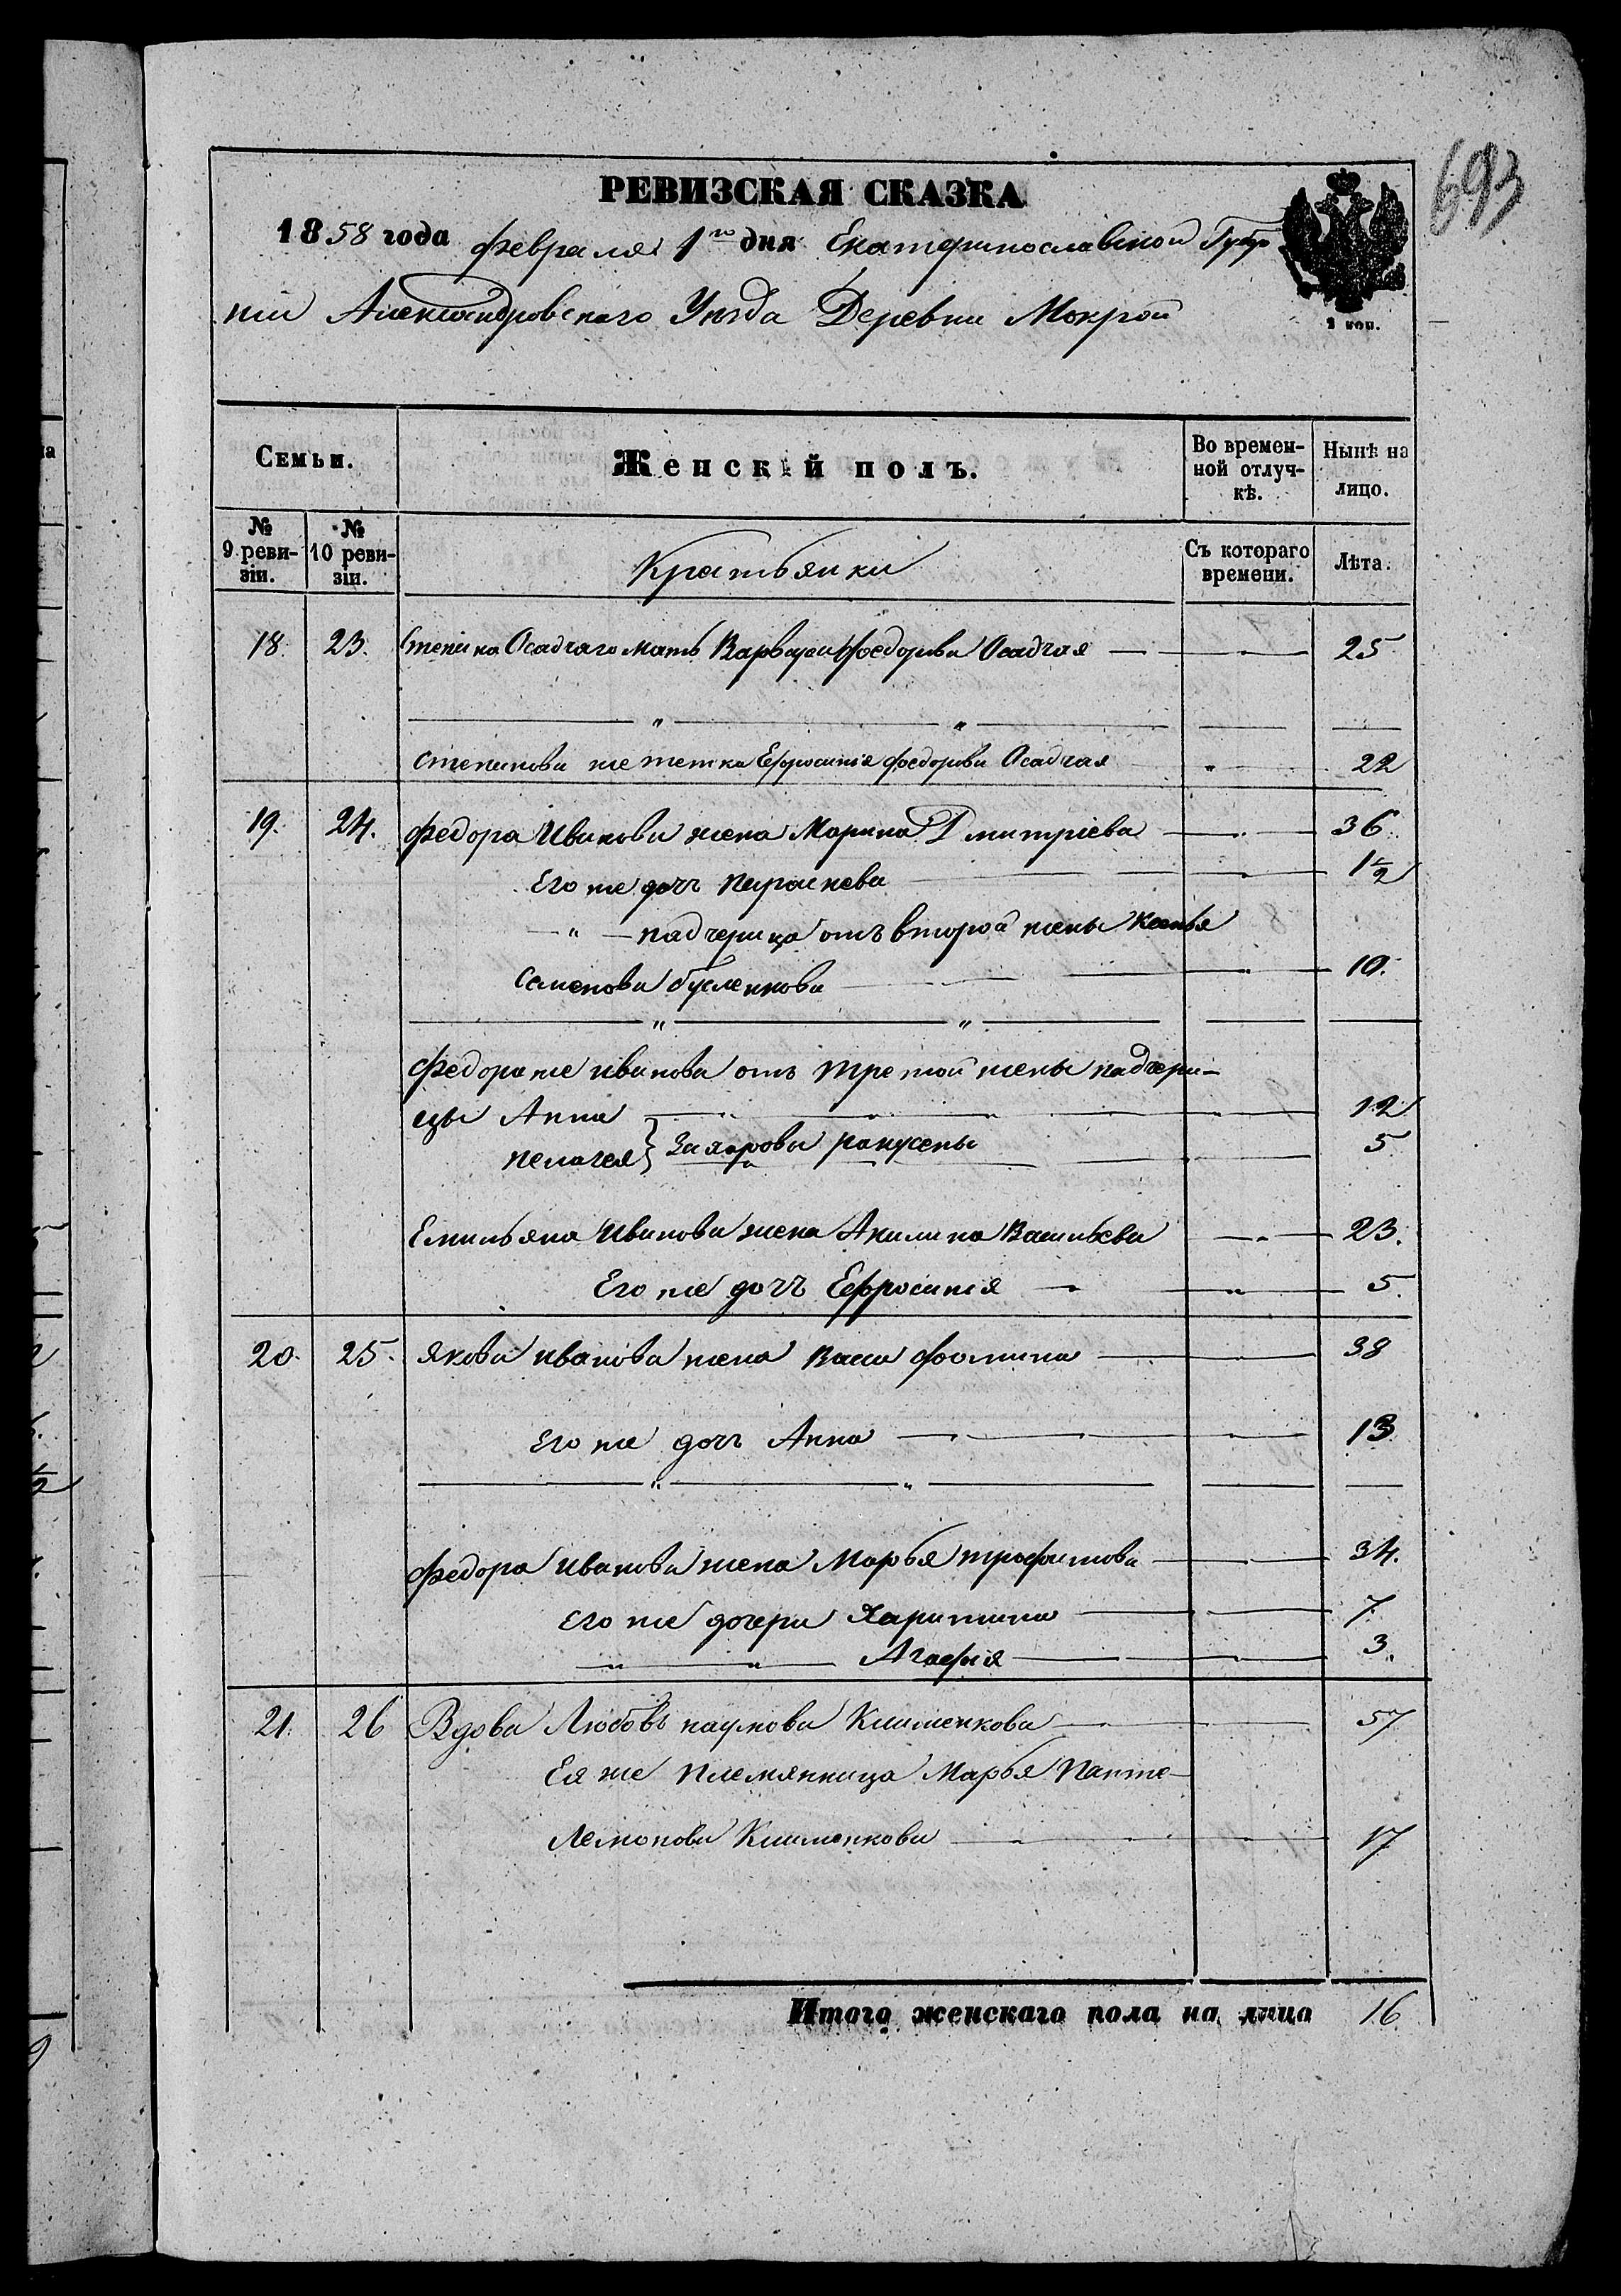 693
РЕВИЗСКАЯ СКАЗКА
1858 года февраля 1го дня Екатеринославской Губер
ніи Александровскаго Уѣзда Деревни Мокрой
2 коп.
Семьи. Женскій полъ. Во времен-ной отлуч-кѣ. Нынѣ на лицо.
№ 9 реви-зіи. № 10 реви-зіи. Крестьянки Съ котораго времени. Лѣта.
18. 23. Степана Осадчаго мать Варвара Федорова Осадчая 25
Степанова же тетка Ефросинія Федорова Осадчая 22
19. 24. Федора Иванова жена Марина Дмитріева 36
Его же дочь Параскева 1½
" надчерица отъ второй жены Ксенья
Семенова 10.
Федора же Иванова отъ третой жены надчери-
цы Анна 12
Пелагея } Захаровы 5
Емильяна Иванова жена Акилина Васильева 23.
Его же дочь Ефросинія 5.
20. 25. Якова Иванова жена Васса Фомина 38
Его же дочь Анна 13
Федора Иванова жена Марья Трофимова 34.
Его же дочери Харитина 7
" " Агафія 3.
21. 26 Вдова Любовь Наумова Клименкова 57
Ея же племянница Марья Панте-
лемонова Клименкова 17
Итого женскаго пола на лицо 16